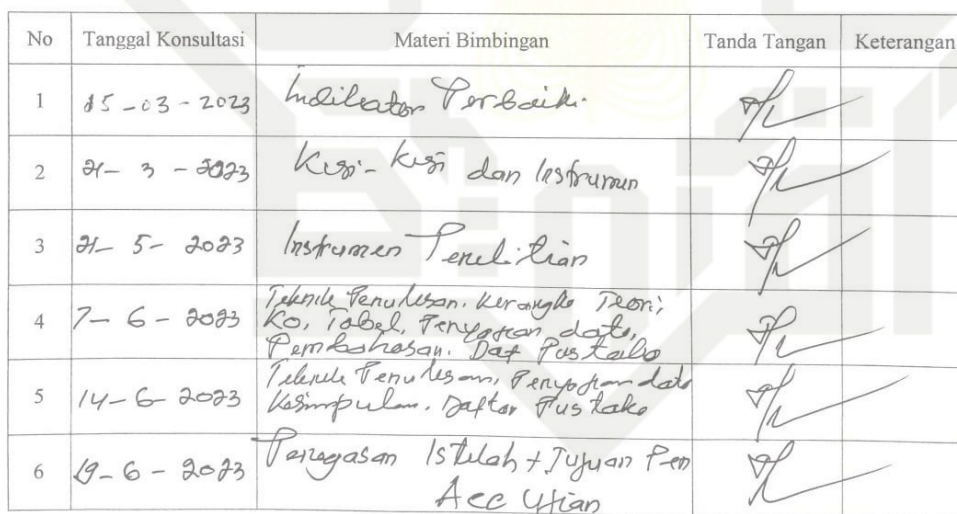 No Tanggal Konsultasi Materi Bimbingan Tanda Tangan Keterangan
1 15-03-2023 Indikator Perbaiki.
2 21-3-2023 Kisi-Kisi dan Instrumen
3 21-5-2023 Instrumen Penelitian
4 7-6-2023 Teknik Penulisan. Kerangka Teori,
Ko, Tabel, Penyajian data,
Pembahasan. Daf Pustaka
5 14-6-2023 Teknik Penulisan, Penyajian data
Kesimpulan. Daftar Pustaka
6 19-6-2023 Penegasan Istilah + Tujuan Pen
Acc Ujian